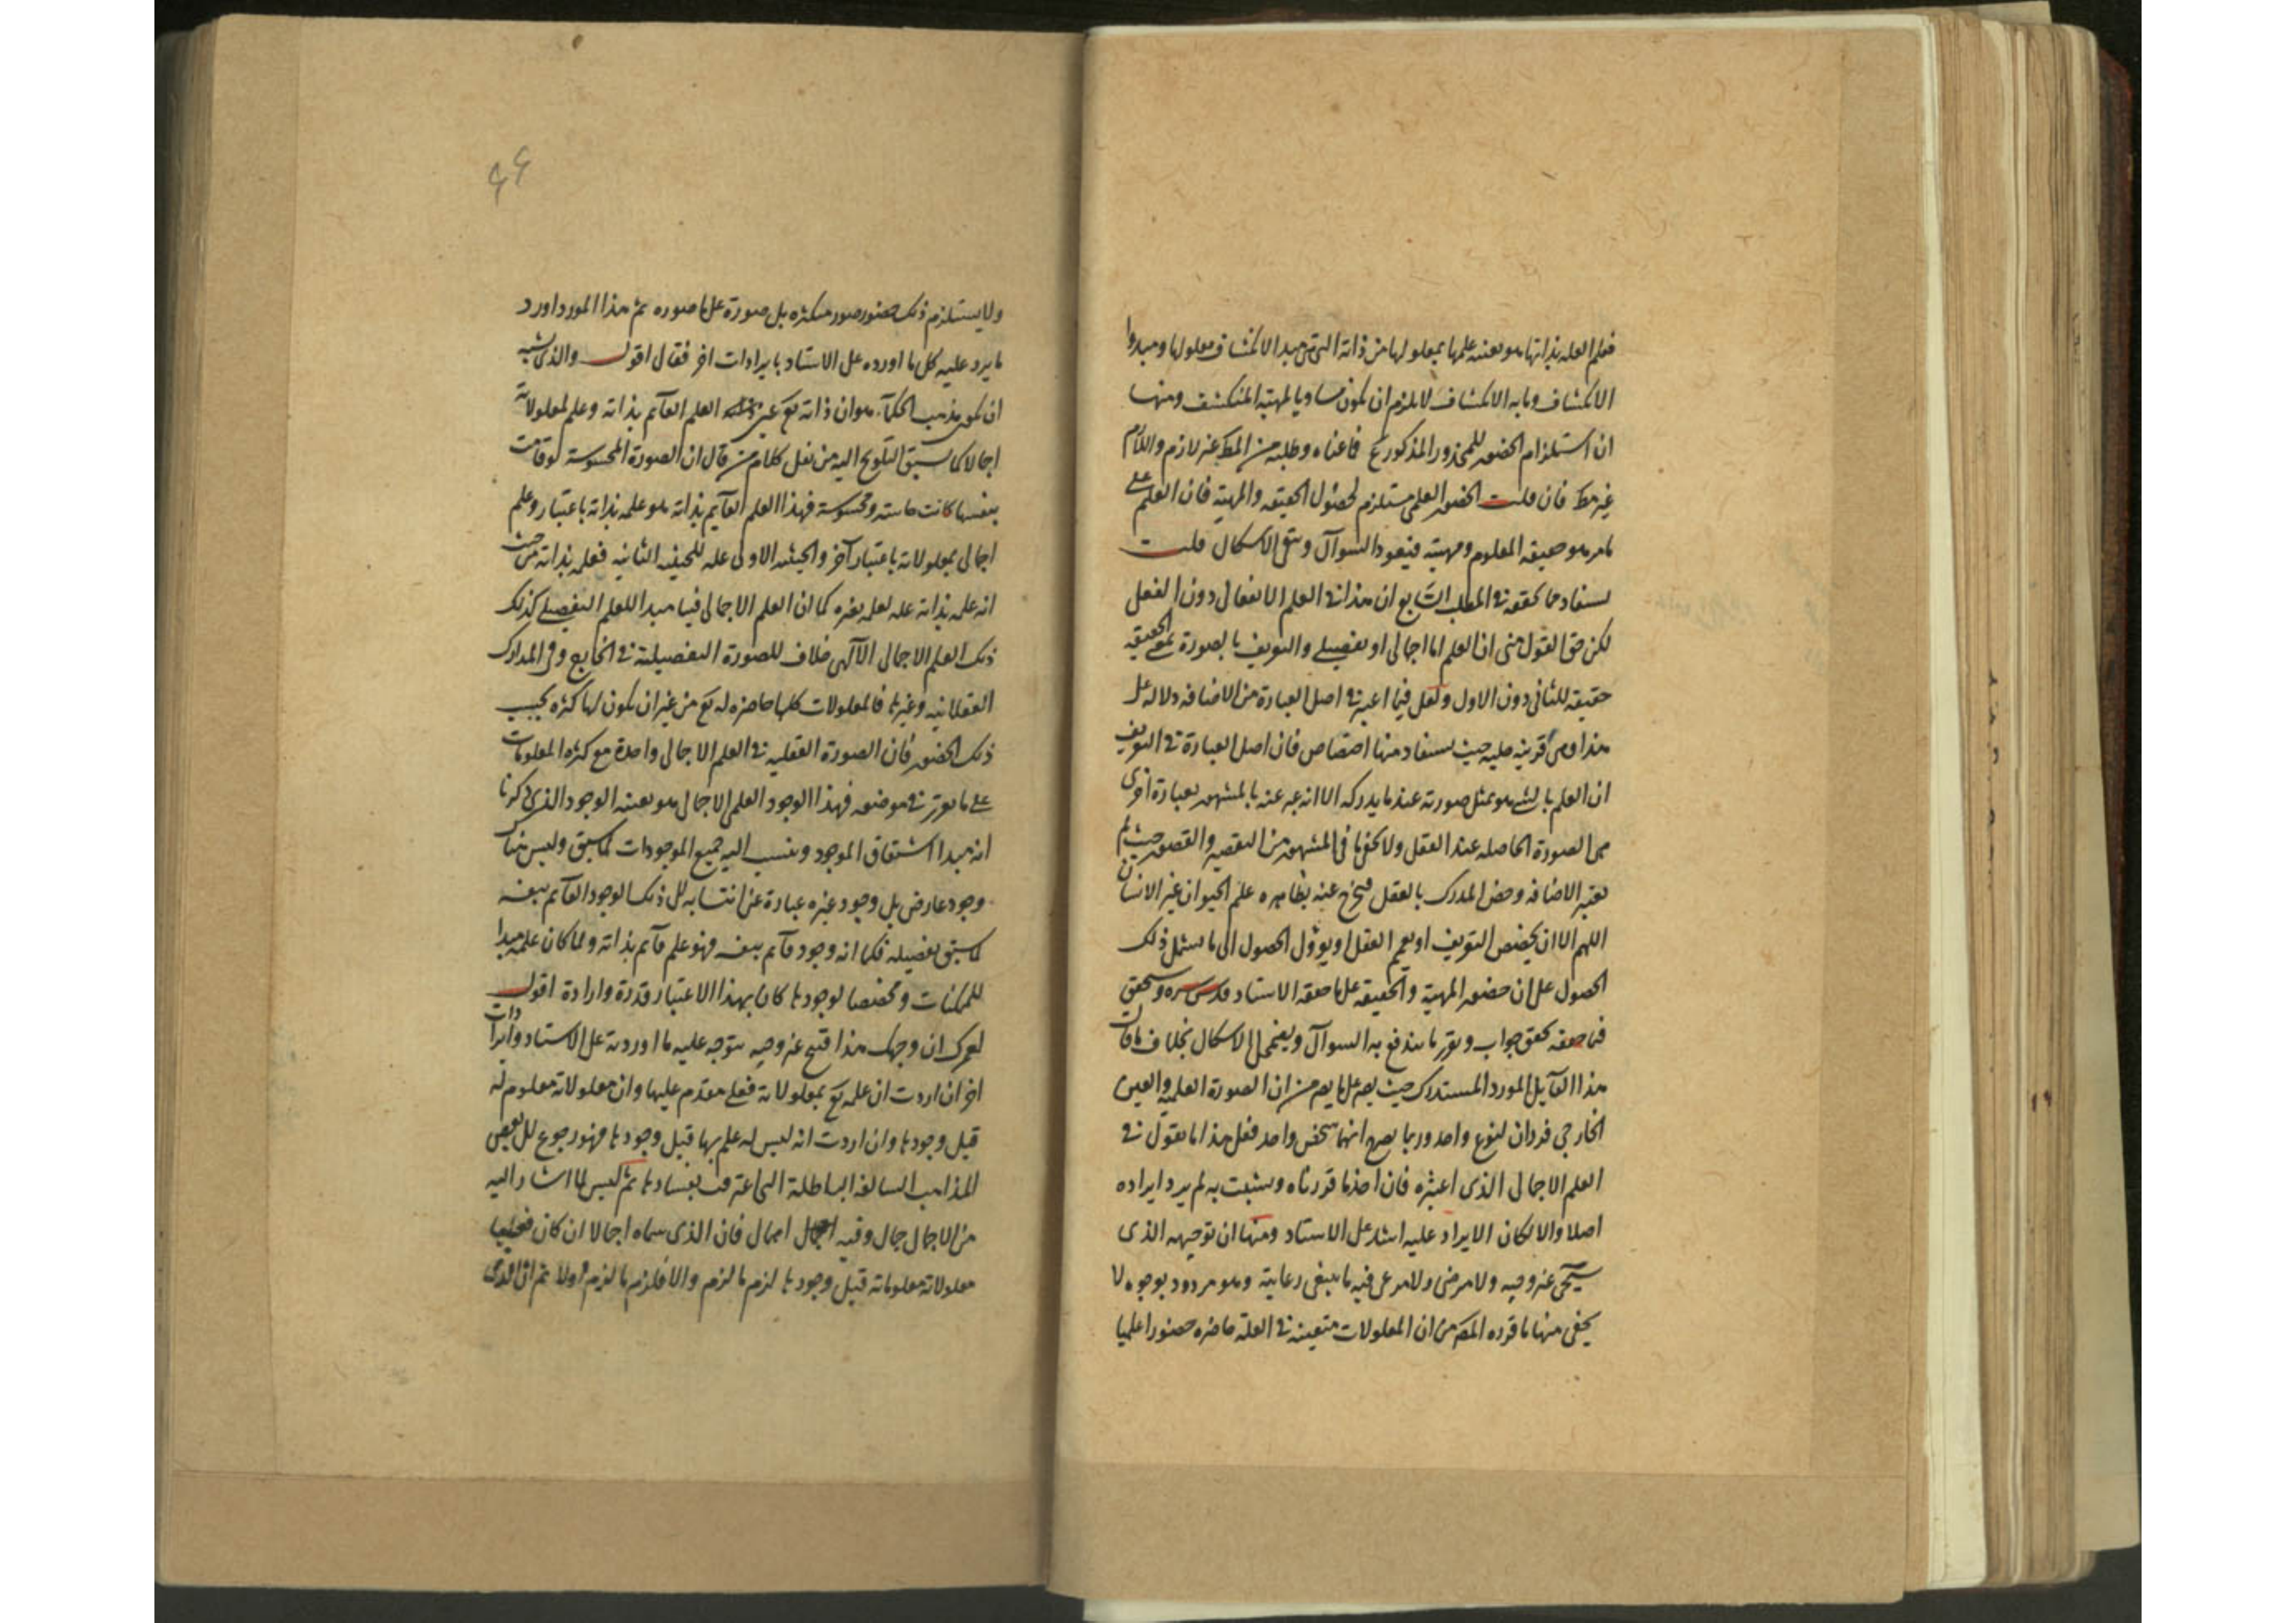 فعلم العله بذاتها هو بعينه علمها بمعلولها من ذاته التى هى مبدا الانكشاف معلولها ومبدا
الانكشاف وما به الانكشاف لا يلزم ان يكون مساويا لمهية المنكشف ومنها
ان استلزام الحضور للمحذور المذكور مم فما عناه وطلبه من المط غير لازم واللازم
غير مط فان قلت الحضور العلمى مستلزم لحصول الحقيقه والمهية فان العلم على
ما مر هو حقيقه المعلوم ومهيته فيعود السوآل ويبقى الاشكال قلت
يستفاد مما نحققه فى المطلب السابع ان هذا فى العلم الانفعالى دون الفعلى
لكن حق القول منى ان العلم اما اجمالى او تفصيلى والتعريف بالصورة بمعنى الحقيقه
حقيقه للثانى دون الاول ولعل فيما اعتبر فى اصل العبارة من الاضافه دلاله على
هذا وهى قرينه جليه حيث يستفاد منها اختصاص فان اصل العبارة فى التعريف
ان العلم بالشئ هو تمثل صورته عند ما يدركه الا انه عبر عنه بالمشهور بعبارة اخرى
هى الصورة الحاصله عند العقل ولا يخفى ما فى المشهور من التقصير والقصور حيث لم
يعتبر الاضافه وخص المدرك بالعقل فيخرج عنه بظاهره علم الحيوان غير الانسان
اللهم الا ان يخصص التعريف او يعمم العقل او يوؤل الحصول الى ما يشمل ذلك
الحصول على ان حضور المهية والحقيقه على ما حققه الاستاد قدس سره وسنحقق
فيما حققه تحقق جواب وتقرر ما يندفع به السوآل ويضمحل الاشكال بخلاف ما قال
هذا القآيل المورد المستدرك حيث يصر على ما يصر من ان الصورة العلمية والعين
الخارجى فردان لنوع واحد وربما يصرح انهما شخص واحد فعلى هذا ما يقول فى
العلم الاجمالى الذى اعتبره فان اخذ ما قررناه وتشبث به لم يرد ايراده
اصلا والا لكان الايراد عليه اشد على الاستاد ومنها ان توجيهه الذى
سيحكى غير وجيه ولا مرضى ولا مرعى فيه ما ينبغى رعايته وهو مردود بوجوه لا
يخفى منها ما قرره المصر من ان المعلولات متعينه فى العلة حاضره حضورا علميا
ولا يستلزم ذلك حضور صور متكثره بل صورة على ما صوره ثم هذا المورد اورد
ما يرد عليه كل ما اورده على الاستاد بايرادات اخر فقال اقول والذى يشبه
ان يكون مذهب الحكمآء هو ان ذاته تع عين العلم القآيم بذاته وعلم لمعلولاته
اجمالا كما سبق التلويح اليه من نقل كلام من قال ان الصورة المحسوسة لو قامت
بنفسها كانت حاسته ومحسوسة فهذا العلم القآيم بذاته هو علمه بذاته باعتبار وعلم
اجمالى بمعلولاته باعتبار آخر والحيثيه الاولى عله للحيثيه الثانيه فعلمه بذاته من حيث
انه علمه بذاته عله لعلمه بغيره كما ان العلم الاجمالى فينا مبدا للعلم التفصيلى كذلك
ذلك العلم الاجمالى الآلهى خلاف للصورة التفصيلية فى الخارج وفى المدارك
العقلانيه وغيرها فالمعلولات كلها حاضره له تع من غير ان يكون لها كثره بحسب
ذلك الحضور فان الصورة العقليه فى العلم الاجمالى واحدة مع كثره المعلومات
على ما تقرر فى موضعه فهذا الوجود العلمى الاجمالى هو بعينه الوجود الذى ذكرنا
انه مبدا اشتقاق الموجود وينسب اليه جميع الموجودات كما سبق وليس هناك
وجود عارض بل وجود غيره عبارة عن انتسابه الى ذلك الوجود القآيم بنفسه
كما سبق تفصيله فكما انه وجود قآيم بنفسه فهو علم قآيم بذاته ولما كان علمه مبدا
للممكنات ومخصصا لوجودها كان بهذا الاعتبار قدرة وارادة اقول
لعمرك ان وجهك هذا قبيح غير وجيه يتوجه عليه ما اوردته على الاستاد وايرادات
اخر ان اردت ان علمه تع بمعلولاته فعلى مقدم عليها وان معلولاته معلومة له
قبل وجودها وان اردت انه ليس له علم بها قبل وجودها فهو رجوع الى بعض
المذاهب السالفة الباطلة التى اعترفت بفسادها ثم ليس لما اشار اليه
من الاجمال جمال وفيه اجمال اهمال فان الذى سماه اجمالا ان كان
معلولاته معلوماته قبل وجودها لزم ما لزم والا فلزم ما لزم اولا ثم
۶۶